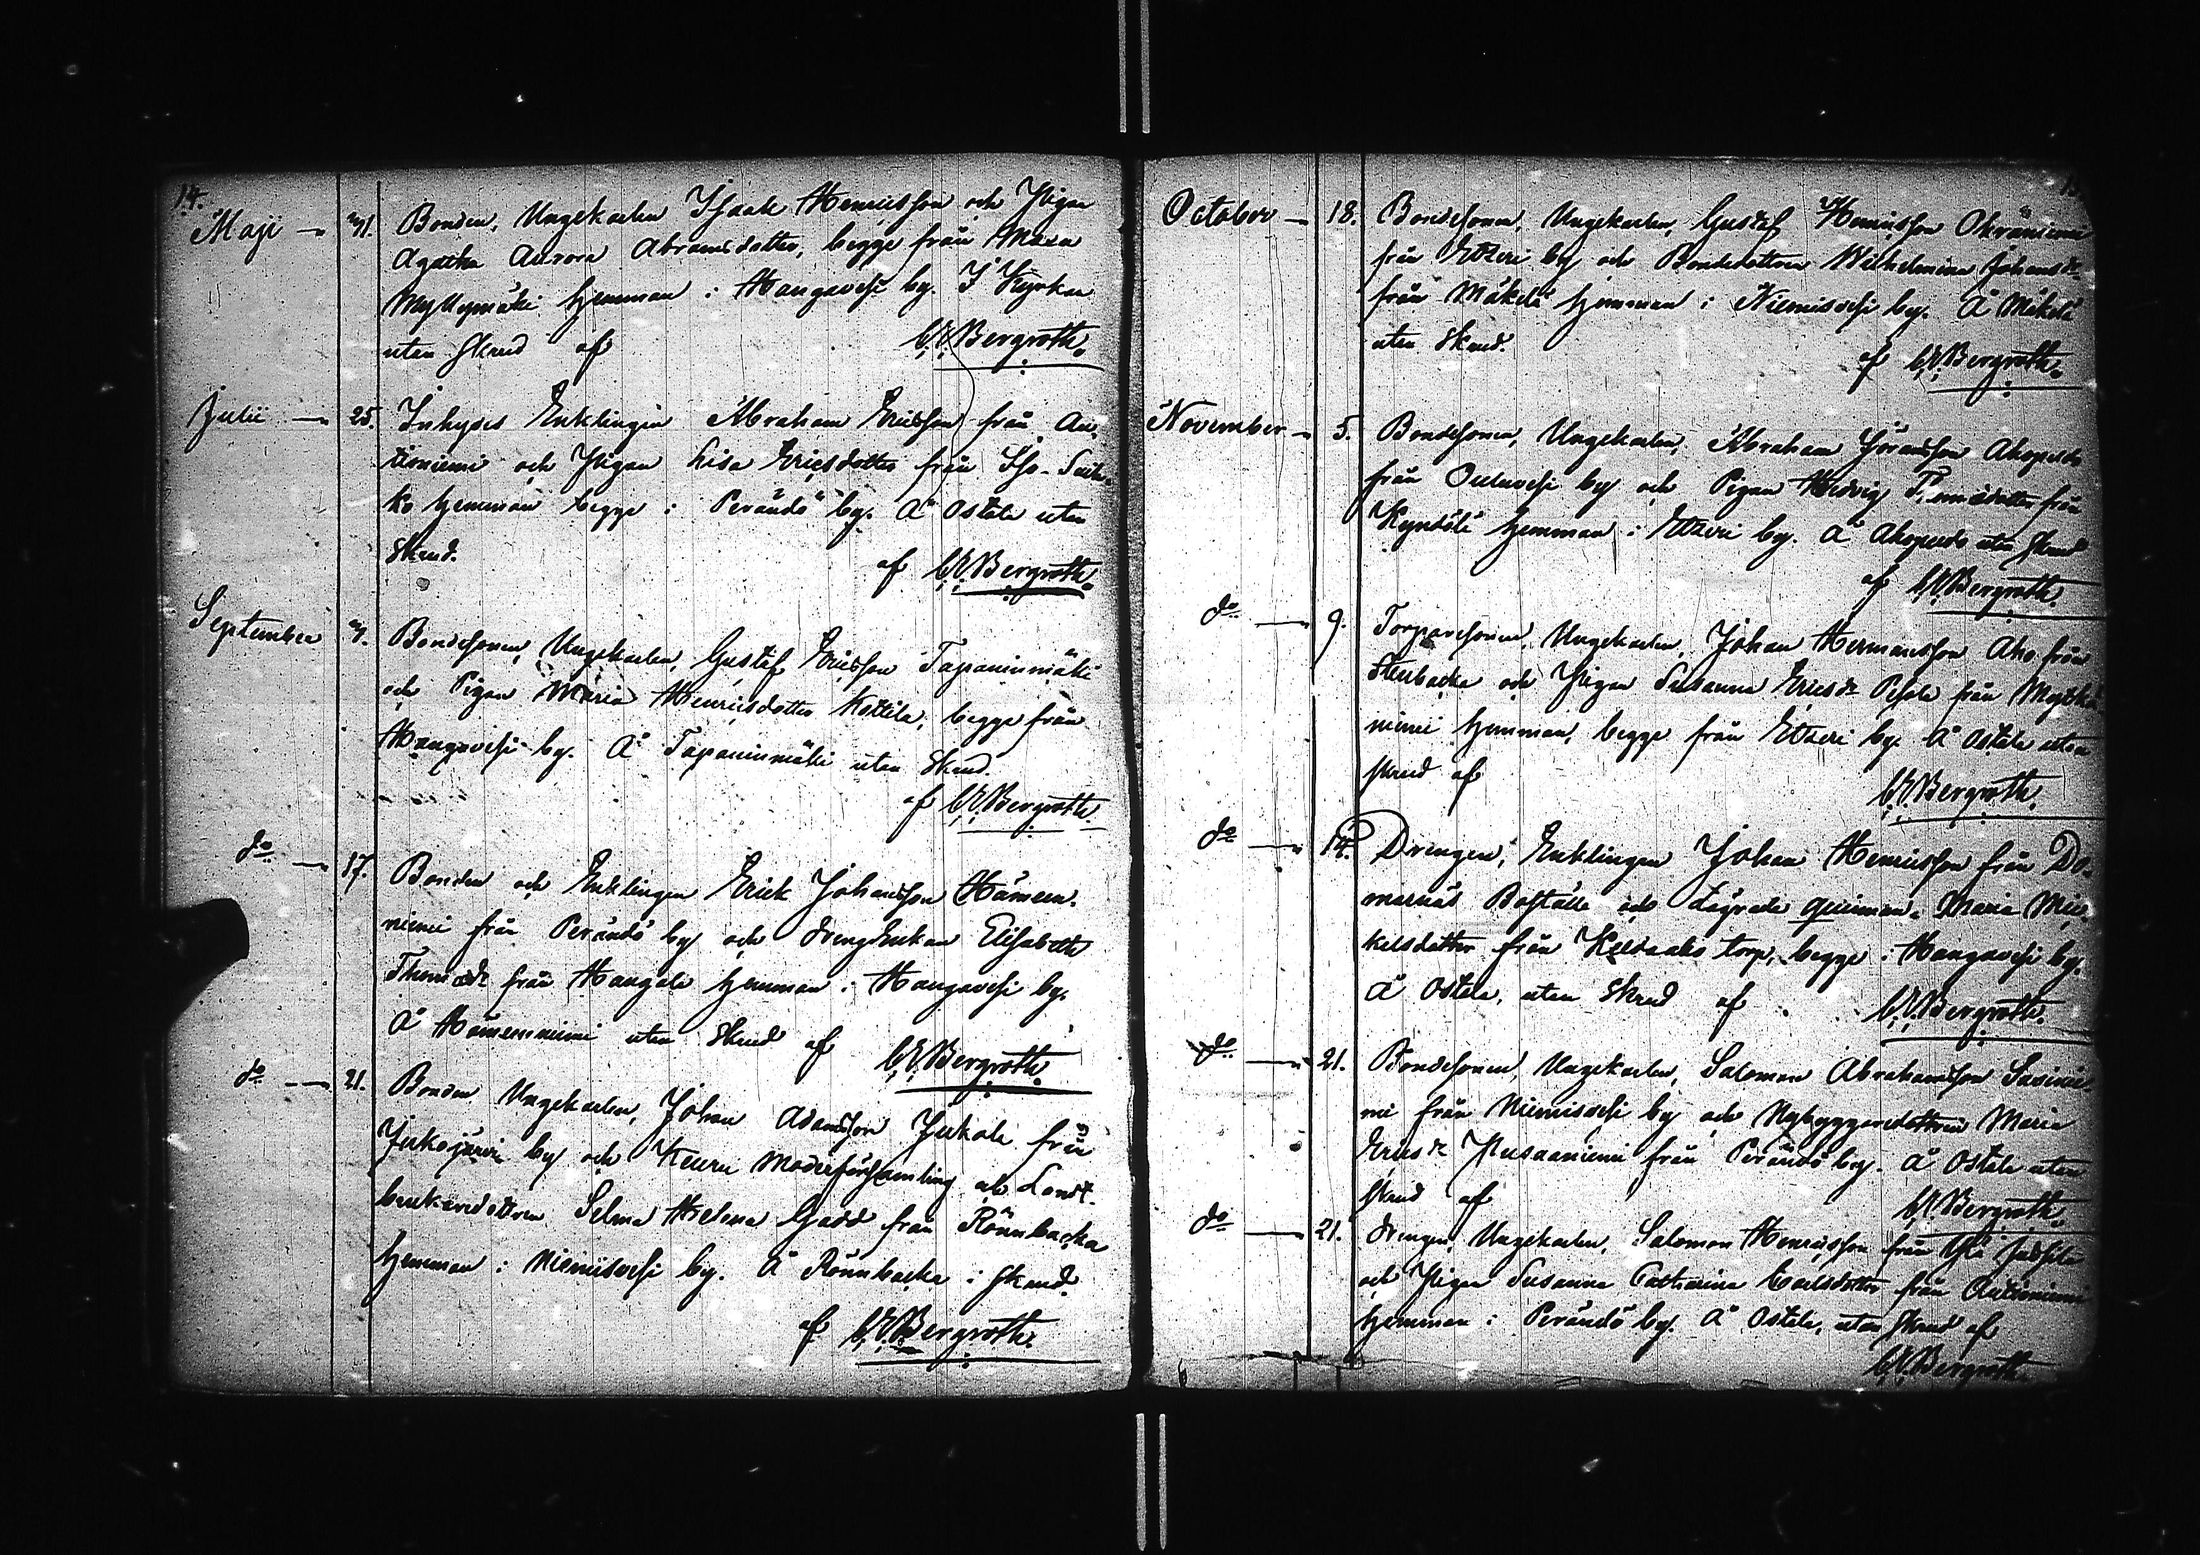 14.
Maji — 31. Bonden, Ungekarlen Isaak Henricsson och Pigan
Agatha Aurora Abramsdotter, begge från
Myllymäki hemman i Hangavesi by. I Kyrkan
utan skrud af C.E. Bergroth.
Julii — 25. Inhyses Enklingen Abraham Ericsson från Au-
tioniemi och Pigan Lisa Ericsdotter från
ko hemman begge i Perändö by. Å Ostola utan
skrud. af C.E. Bergroth.
September Bondesonen, Ungekarlen, Gustaf Ericsson Tapaninmäki
och Pigan Maria Henricsdotter Kottila, begge från
Hangavesi by. Å Tapaninmäki utan skrud.
af C.E. Bergroth.
do — 17. Bonden och Enklingen Erick Johansson Hämeen-
niemi från Perändö by och Drengenkan Elisabeth
från Hangola hemman i Hangavesi by.
Å Hämeenniemi utan skrud af C.E. Bergroth.
do — 21. Bonden Ungekarlen, Johan Adamsson Jukola från
Jukojärvi by och Keuru Moderförsamling och Landt-
brukaredottren Selma Helena Gadd från Rönnbacka
hemman i Niemisvesi by. Å Rönnbacka i skrud.
af C.E. Bergroth.
October — 18. Bondesonen, Ungekarlen, Gustaf Henricsson
från Etzeri by och Bondedottren Wilhelmina Johansdr
från Mäkelä hemman i Niemisvesi by. Å Mäkelä
utan skrud. af C.E. Bergroth.
November — 5. Bondesonen, Ungekarlen, Abraham Göransson
från Ouluvesi by och Pigan Hedvig från
hemman i Etzeri by. Å utan skrud
af C.E. Bergroth.
do — 9. Torparesonen, Ungekarlen, Johan Hermansson Aho från
Stenbacka och Pigan Susanna Ericsdr från
niemi hemman, begge från Etzeri by. Å Ostola utan
skrud af C.E. Bergroth.
do — 14. Drengen, Enklingen Johan Henricsson från Do-
marnäs Boställe och Lägrade qvinnan Maria Mic-
kelsdotter från torp, begge i Hangavesi by.
Å Ostola, utan skrud af C.E. Bergroth.
do — 21. Bondesonen, Ungekarlen, Salomon Abrahamsson Savinie-
mi från Niemisvesi by och Nybyggaredottren Maria
Ericsdr från Perändö by. Å Ostola utan
skrud af C.E. Bergroth.
do — 21. Drengen, Ungekarlen, Salomon Henricsson från
och Pigan Susanna Catharina Carlsdotter från Autioniemi
hemman i Perändö by. Å Ostola, utan skrud af
C.E. Bergroth.